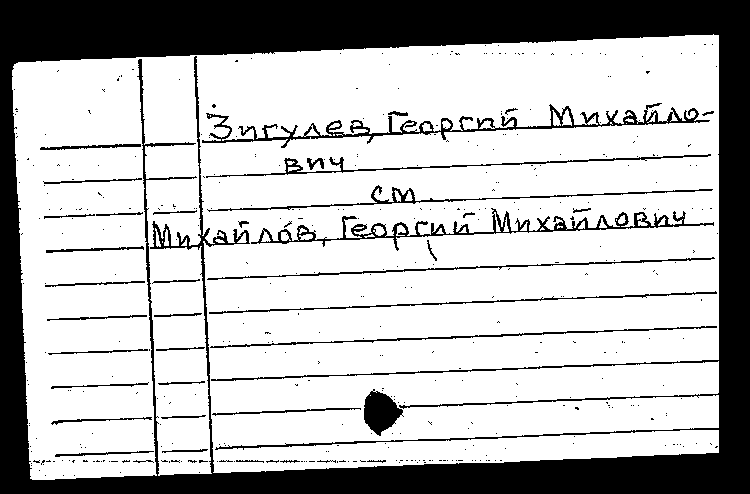 Зигулев, Георгий Михайло-
вич
см.
Михайлов, Георгий Михайлович